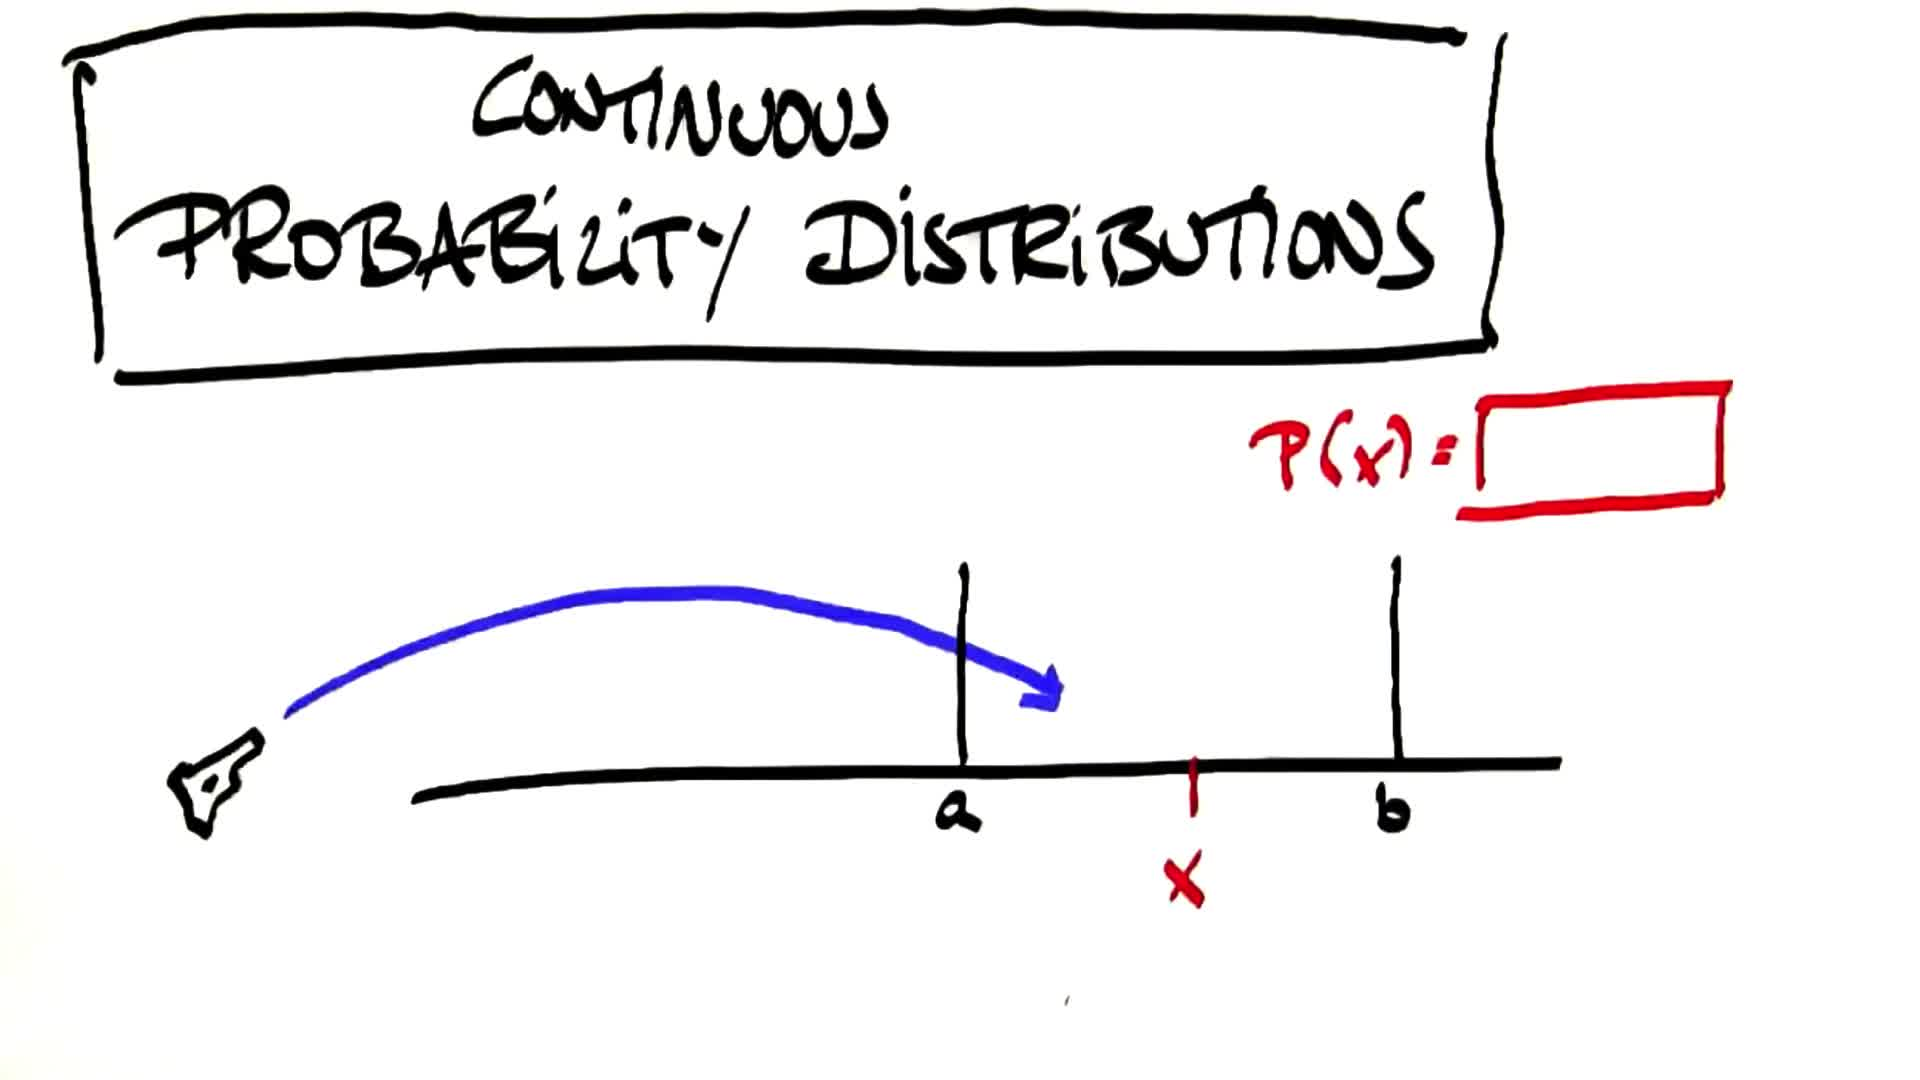 CONTINUOUS
PROBABILITY DISTRIBUTIONS
P(x) =
a
b
x